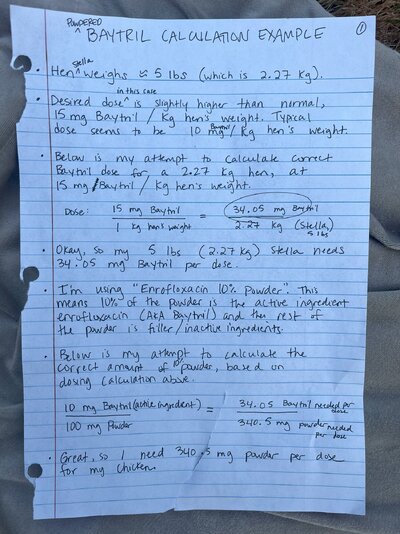 POWDERED
BAYTRIL CALCULATION EXAMPLE
1
Stella
• Hen ^ weighs ≈ 5 lbs (which is 2.27 Kg).
in this case
• Desired dose ^ is slightly higher than normal,
15 mg Baytril / Kg hen's weight. Typical
dose seems to be 10 mg Baytril / Kg hen's weight.
• Below is my attempt to calculate correct
Baytril dose for a 2.27 Kg hen, at
15 mg Baytril / Kg hen's weight.
Dose: 15 mg Baytril / 1 Kg hen's weight = 34.05 mg Baytril / 2.27 Kg (Stella, 5 lbs)
• Okay, so my 5 lbs (2.27 Kg) Stella needs
34.05 mg Baytril per dose.
• I'm using "Enrofloxacin 10% Powder". This
means 10% of the powder is the active ingredient
enrofloxacin (AKA Baytril) and the rest of
the powder is filler/inactive ingredients.
• Below is my attempt to calculate the
correct amount of powder, based on
dosing calculation above.
10 mg Baytril (active ingredient) / 100 mg Powder = 34.05 Baytril needed per dose / 340.5 mg powder needed per dose
• Great, so I need 340.5 mg powder per dose
for my chicken.